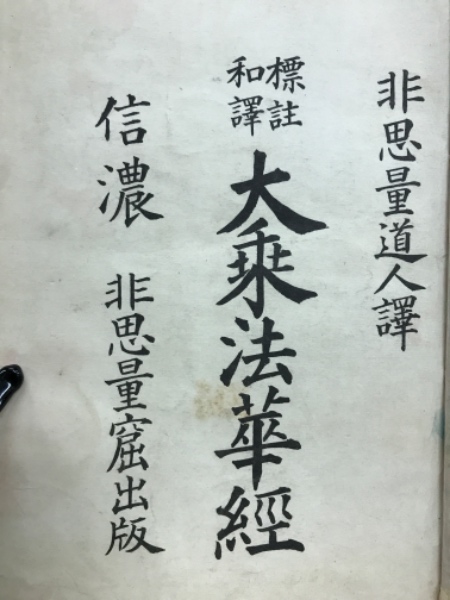 非思量道人譯
標註
和譯
大乘法華經
信濃 非思量窟出版